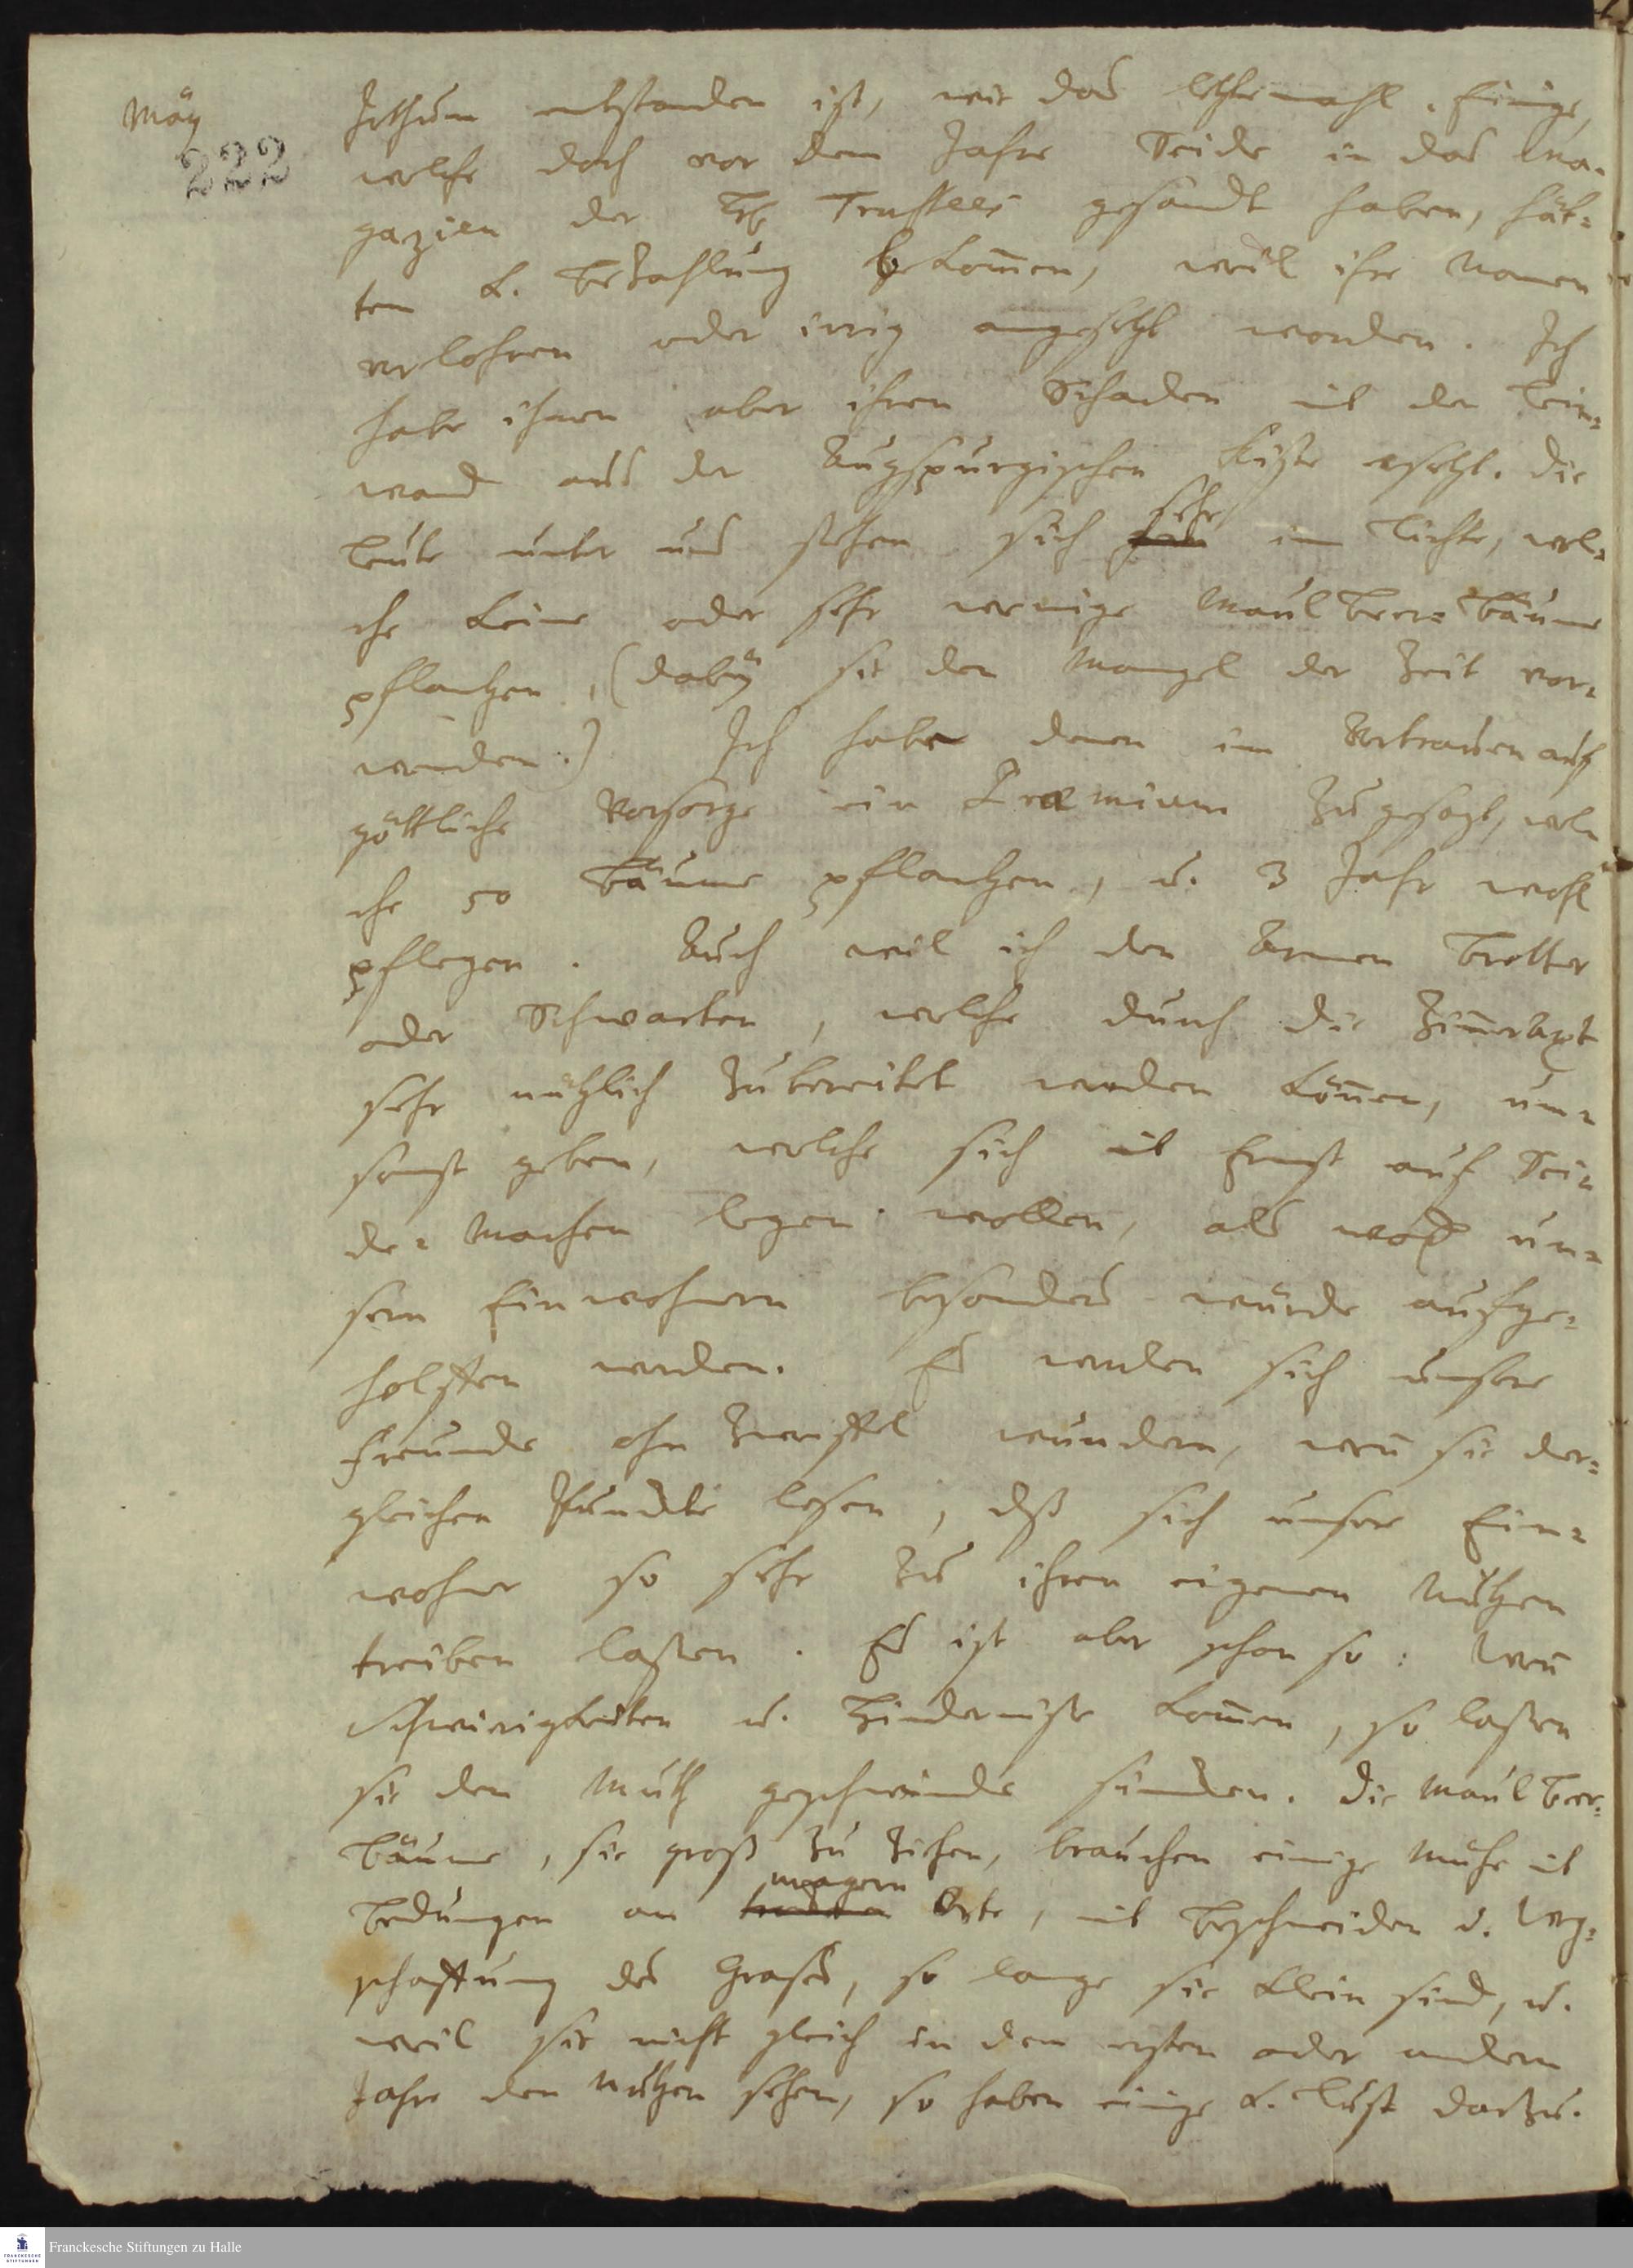 Mäy
222
Irthum entstanden ist, wie das letztemahl. Einige,
welche doch vor dem Jahre Seide in das Ma-
gazien der Trustees gesandt haben, hät-
ten k. Bezahlung bekom̄en, weil ihre Namen
verlohren oder irrig angesetzt worden. Ich
habe ihnen aber ihren Schaden mit der Lein-
wand aus der Augspurgischen Kiste ersetzt. Die
Leute unter uns stehen sich sehr im Lichte, wel-
che keine oder sehr wenige Maulbeer-Bäume
pflantzen, (dabey sie den Mangel der Zeit vor-
wenden.) Ich habe denen im Vertrauen auf
göttliche Vorsorge ein Praemium zugesagt, wel-
che 50 Bäume pflantzen, u. 3 Jahr wohl
pflegen. Auch will ich den Armen Bretter
oder Schwarten, welche durch die Zim̄eraxt
sehr nützlich zubereitet werden kön̄en, um-
sonst geben, welche sich mit Ernst auf Sei-
de-Machen legen wollen, als wodurch un-
sern Einwohnern besonders würde aufge-
holffen werden. Es werden sich unsere
Freunde ohn Zweiffel wundern, wen̄ sie der-
gleichen Puncte lesen, dß sich unsere Ein-
wohner so sehr zu ihren eigenen Nutzen
treiben laßen. Es ist aber schon so: Wen̄
Schwierigkeiten u. Hinderniße kom̄en, so laßen
sie den Muth geschwinde sincken. Die Maulbeer-
bäume, sie groß zu ziehen, brauchen einige Mühe mit
Bedungen an magern Orte, mit Beschneiden u. Weg-
schaffung des Grases, so lange sie klein sind, u.
weil sie nicht gleich in dem ersten oder andern
Jahre den Nutzen sehen, so haben einige k. Lust darzu.
Franckesche Stiftungen zu Halle